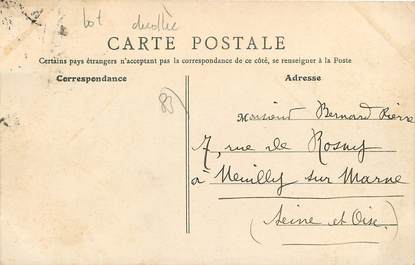 bot
CARTE POSTALE
Certains pays étrangers n'acceptant pas la correspondance de ce côté, se renseigner à la Poste
Correspondance
Adresse
83
Monsieur Bernard Pierre
7, rue de Rosny
à Neuilly sur Marne
(Seine et Oise)